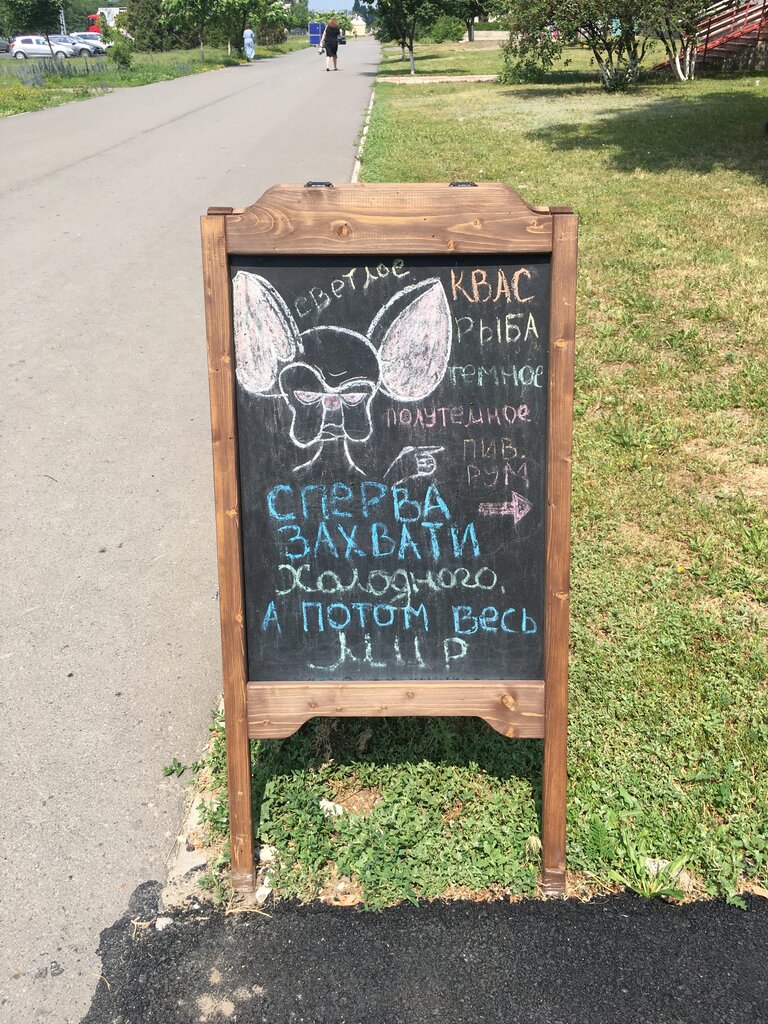 светлое
КВАС
РЫБА
темное
полутемное
ПИВ.
РУМ
СПЕРВА
ЗАХВАТИ
Холодного,
А ПОТОМ весь
МИР